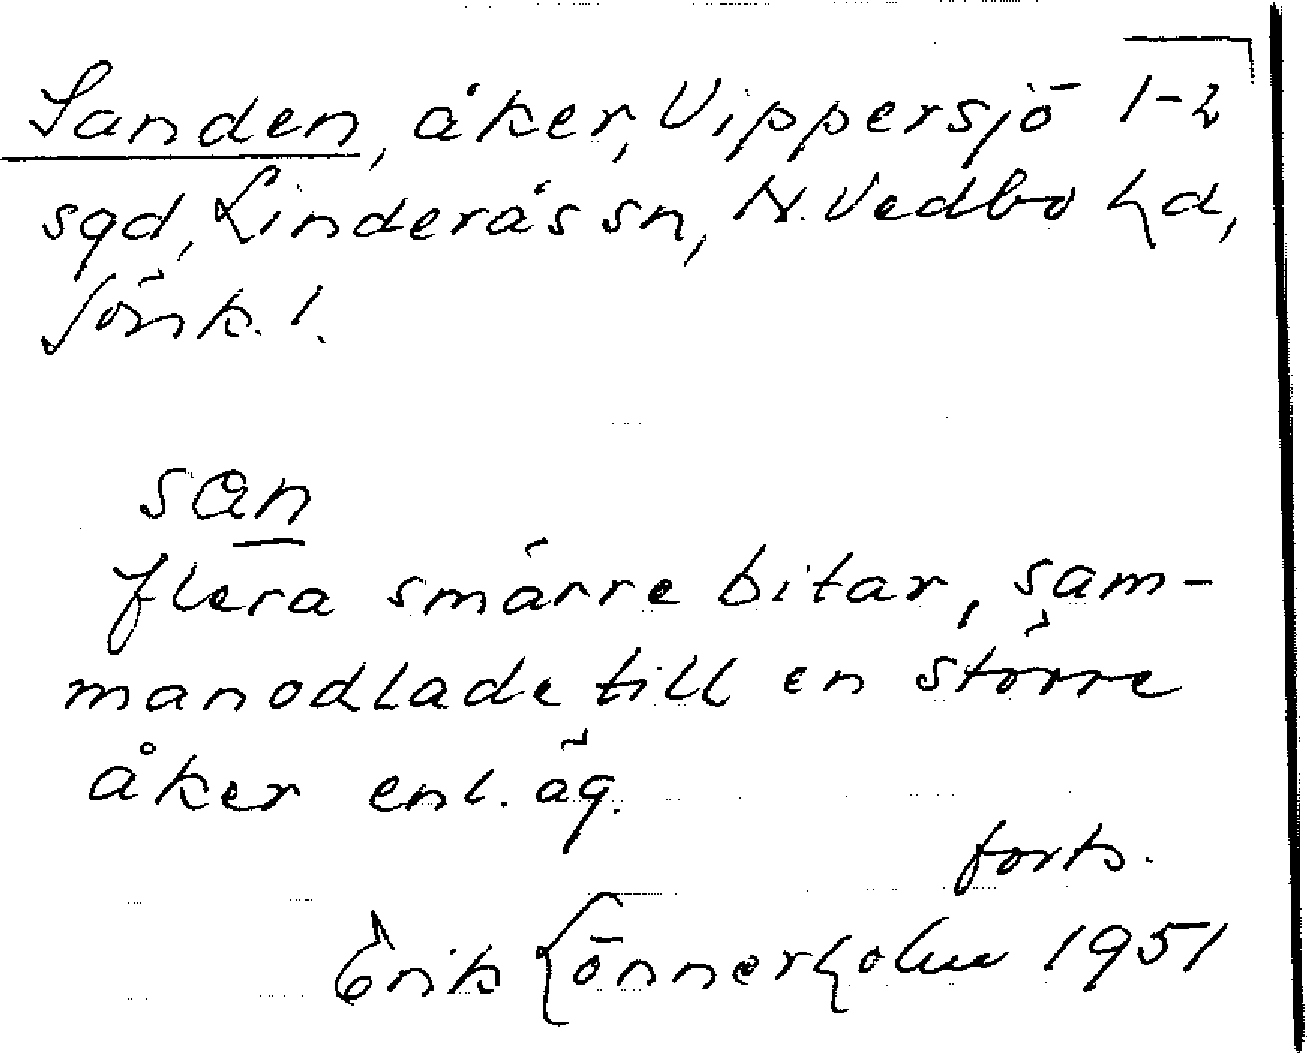 Sanden, åker, Vippersjö 1-2
sgd, Linderås sn, N. Vedbo hd,
Jönk. l.
san
flera smärre bitar, sam-
manodlade till en större
åker enl. äg.
forts.
Erik Lönnerholm 1951